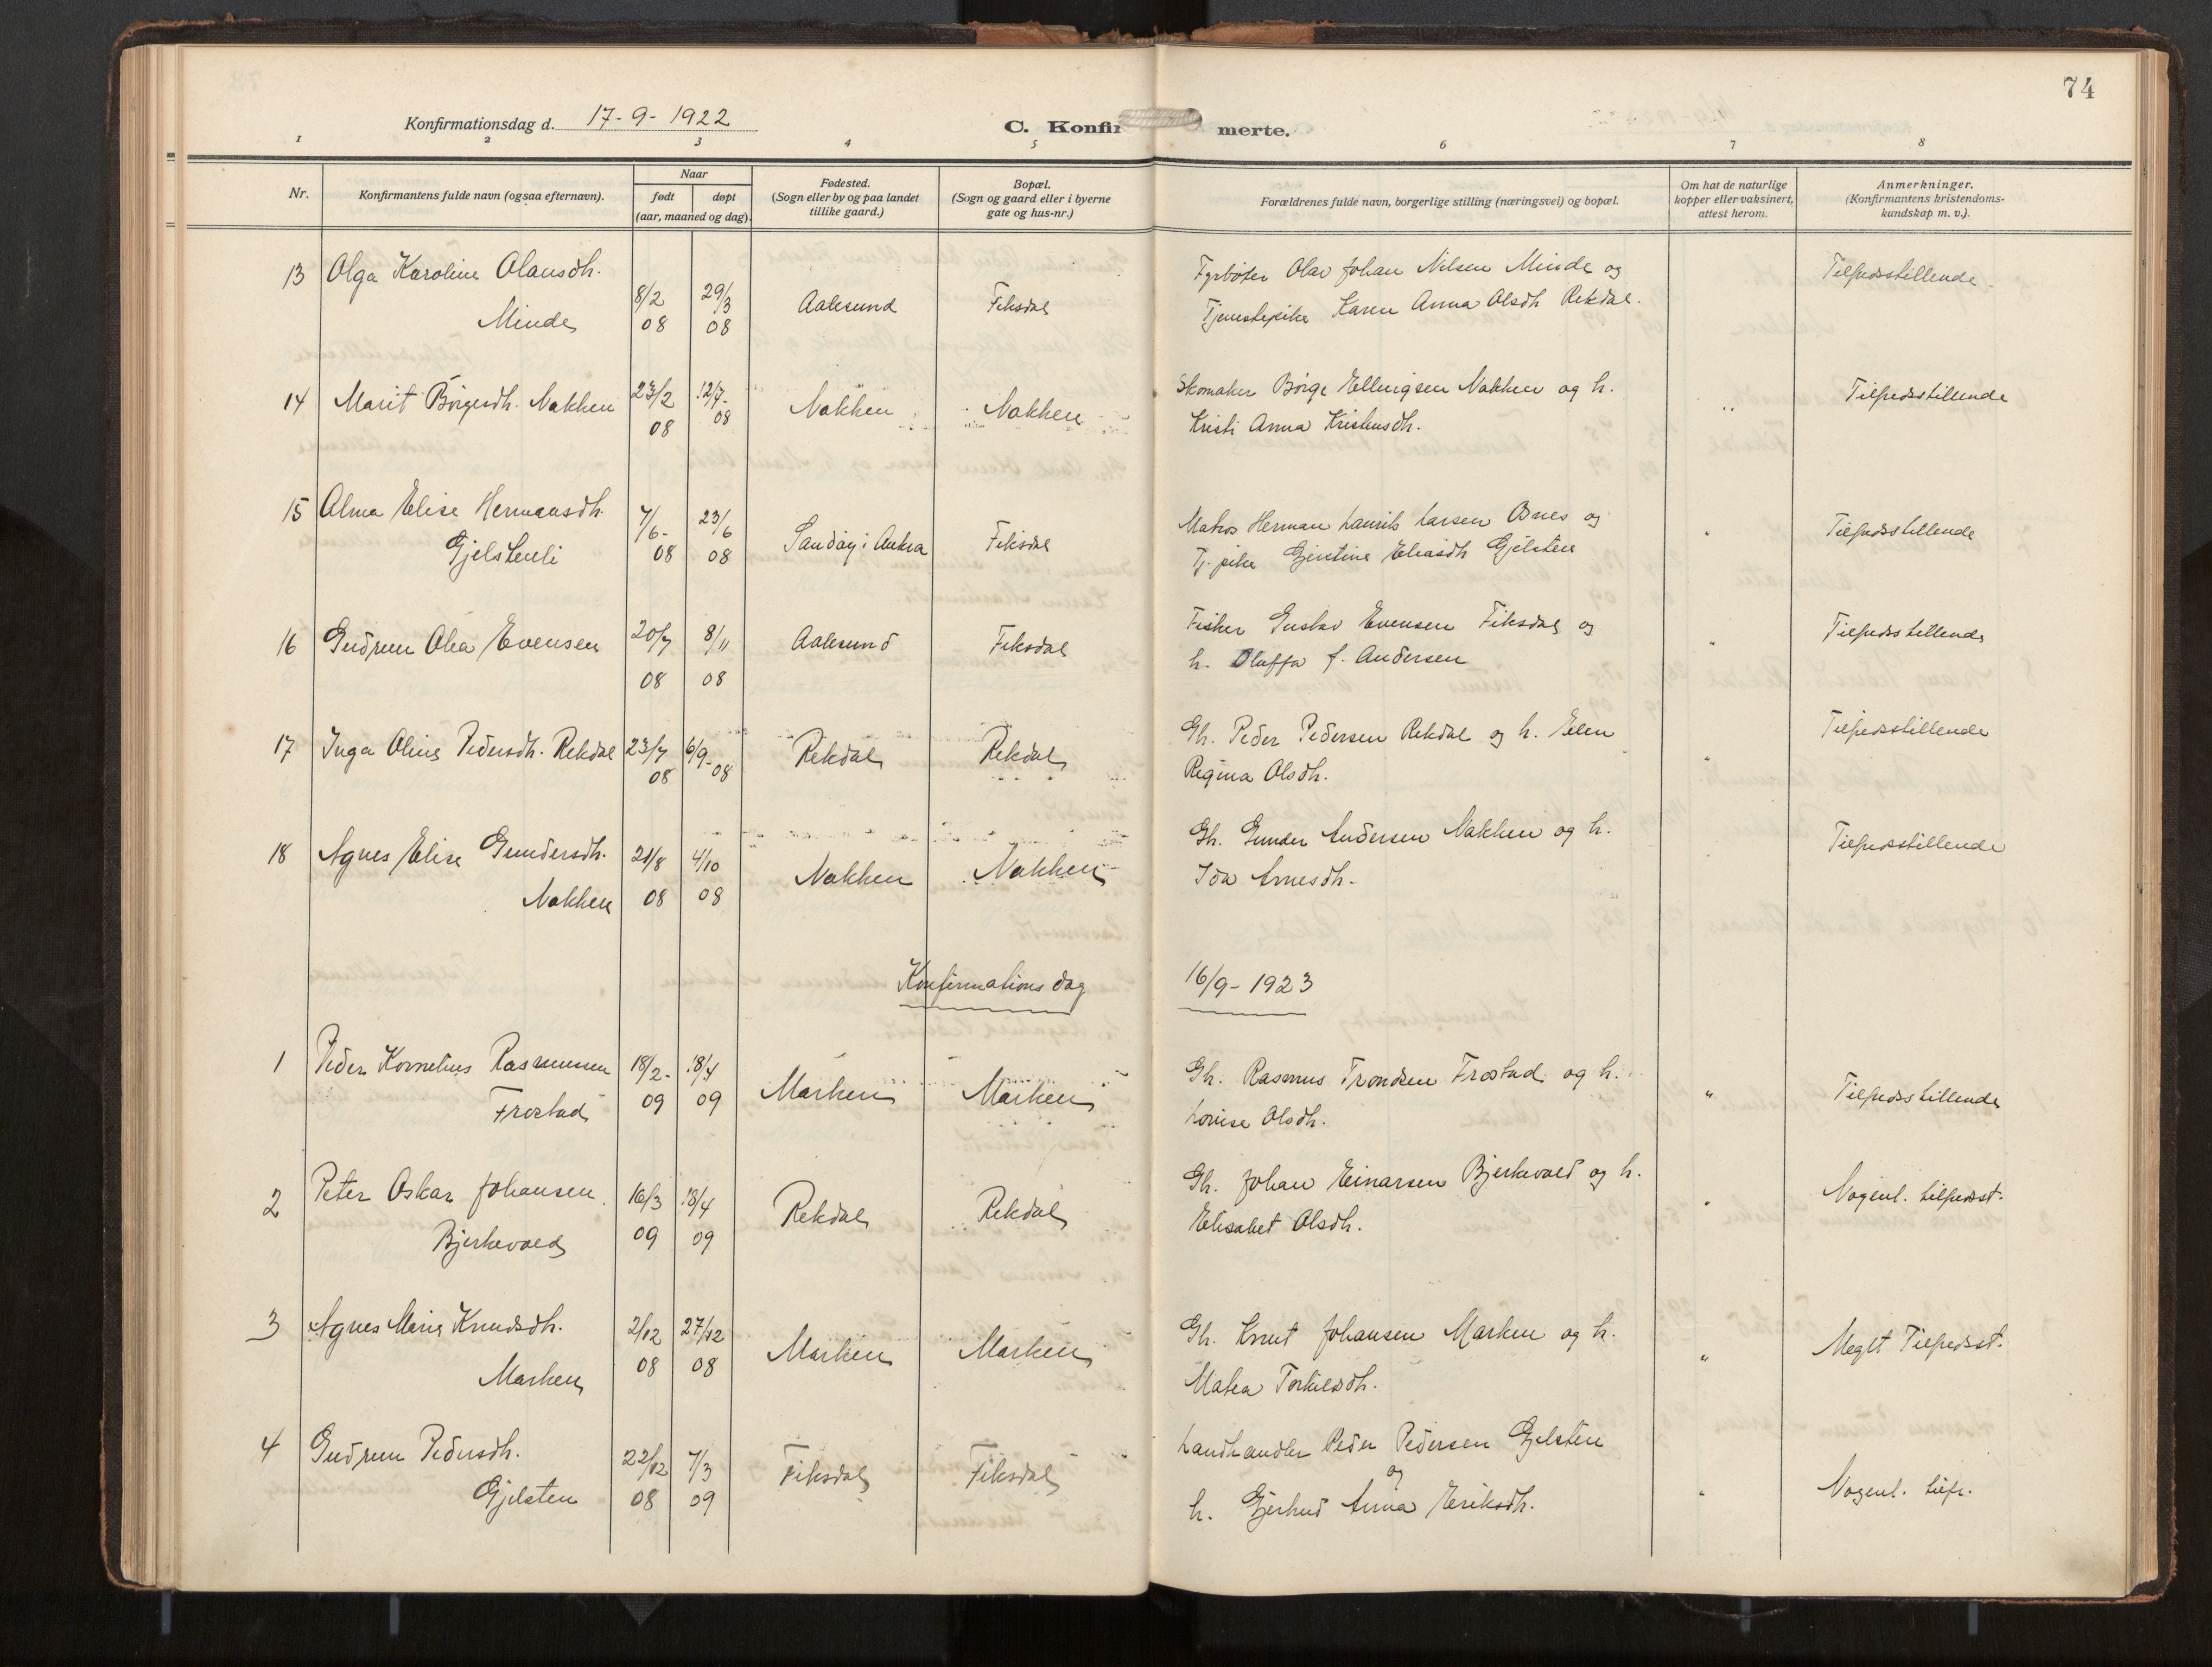 74
Konfirmationsdag d. 17-9-1922
C. Konfirmerte.
1 2 3 4 5 6 7 8
Nr.
Konfirmantens fulde navn (ogsaa efternavn).
Naar
født døpt
(aar, maaned og dag).
Fødested.
(Sogn eller by og paa landet
tillike gaard.)
Bopæl.
(Sogn og gaard eller i byerne
gate og hus-nr.)
Forældrenes fulde navn, borgerlige stilling (næringsvei) og bopæl.
Om hat de naturlige
kopper eller vaksinert,
attest herom.
Anmerkninger.
(Konfirmantens kristendoms-
kundskap m. v.).
13 Olga Karoline Olausdh.
Minde 8/2 08 29/3 08 Aalesund Fiksdal
Fyrbøter Olav Johan Nilsen Minde og
Tjenestepike Karen Anna Olsdh Rekdal.
Tilfredsstillende.
14 Marit Børgesdh. Nakken 23/2 08 12/7- 08 Nakken Nakken
Skomaker Børge Ellingsen Nakken og h.
Kristi Anna Kristensdh.
" Tilfredsstillende
15 Alma Elise Hermansdh.
Gjelstenli 7/6- 08 23/6 08 Sandøy i Aukra Fiksdal
Matros Herman Laurits Larsen Osnes og
Tj. pike Gjertine Eliasdh Gjelsten
" Tilfredsstillende
16 Gudrun Olea Evensen 20/7 08 8/11 08 Aalesund Fiksdal
Fisker Gustav Evensen Fiksdal og
h. Oluffa f. Andersen
" Tilfredsstillende
17 Inga Oline Pedersdh. Rekdal 23/7 08 6/9- 08 Rekdal Rekdal
Gh. Peder Pedersen Rekdal og h. Elen
Regina Olsdh.
" Tilfredsstillende
18 Agnes Elise Gundersdh.
Nakken 21/8 08 4/10 08 Nakken Nakken
Gh. Gunder Andersen Nakken og h.
Ida Arnesdh.
Tilfredsstillende
Konfirmationsdag 16/9-1923
1 Peder Kornelius Rasmussen
Frostad 18/2- 09 18/4 09 Marken Marken
Gh. Rasmus Trondsen Frostad og h.
Lovise Olsdh.
" Tilfredsstillende
2 Peter Oskar Johansen
Bjerkevold 16/3 09 18/4 09 Rekdal Rekdal
Gh. Johan Einarsen Bjerkevold og h.
Elisabet Olsdh.
" Nogenl. tilfredsst.
3 Agnes Marie Knudsdh.
Marken 2/12 08 27/12 08 Marken Marken
Gh. Knut Johansen Marken og h.
Matea Torkilsdh.
" Meget Tilfredsst.
4 Gudrun Pedersdh.
Gjelsten 22/12 08 7/3 09 Fiksdal Fiksdal
Landhandler Peder Pedersen Gjelsten
og
h. Gjertrud Anna Eriksdh.
" Nogenl. tilfr.